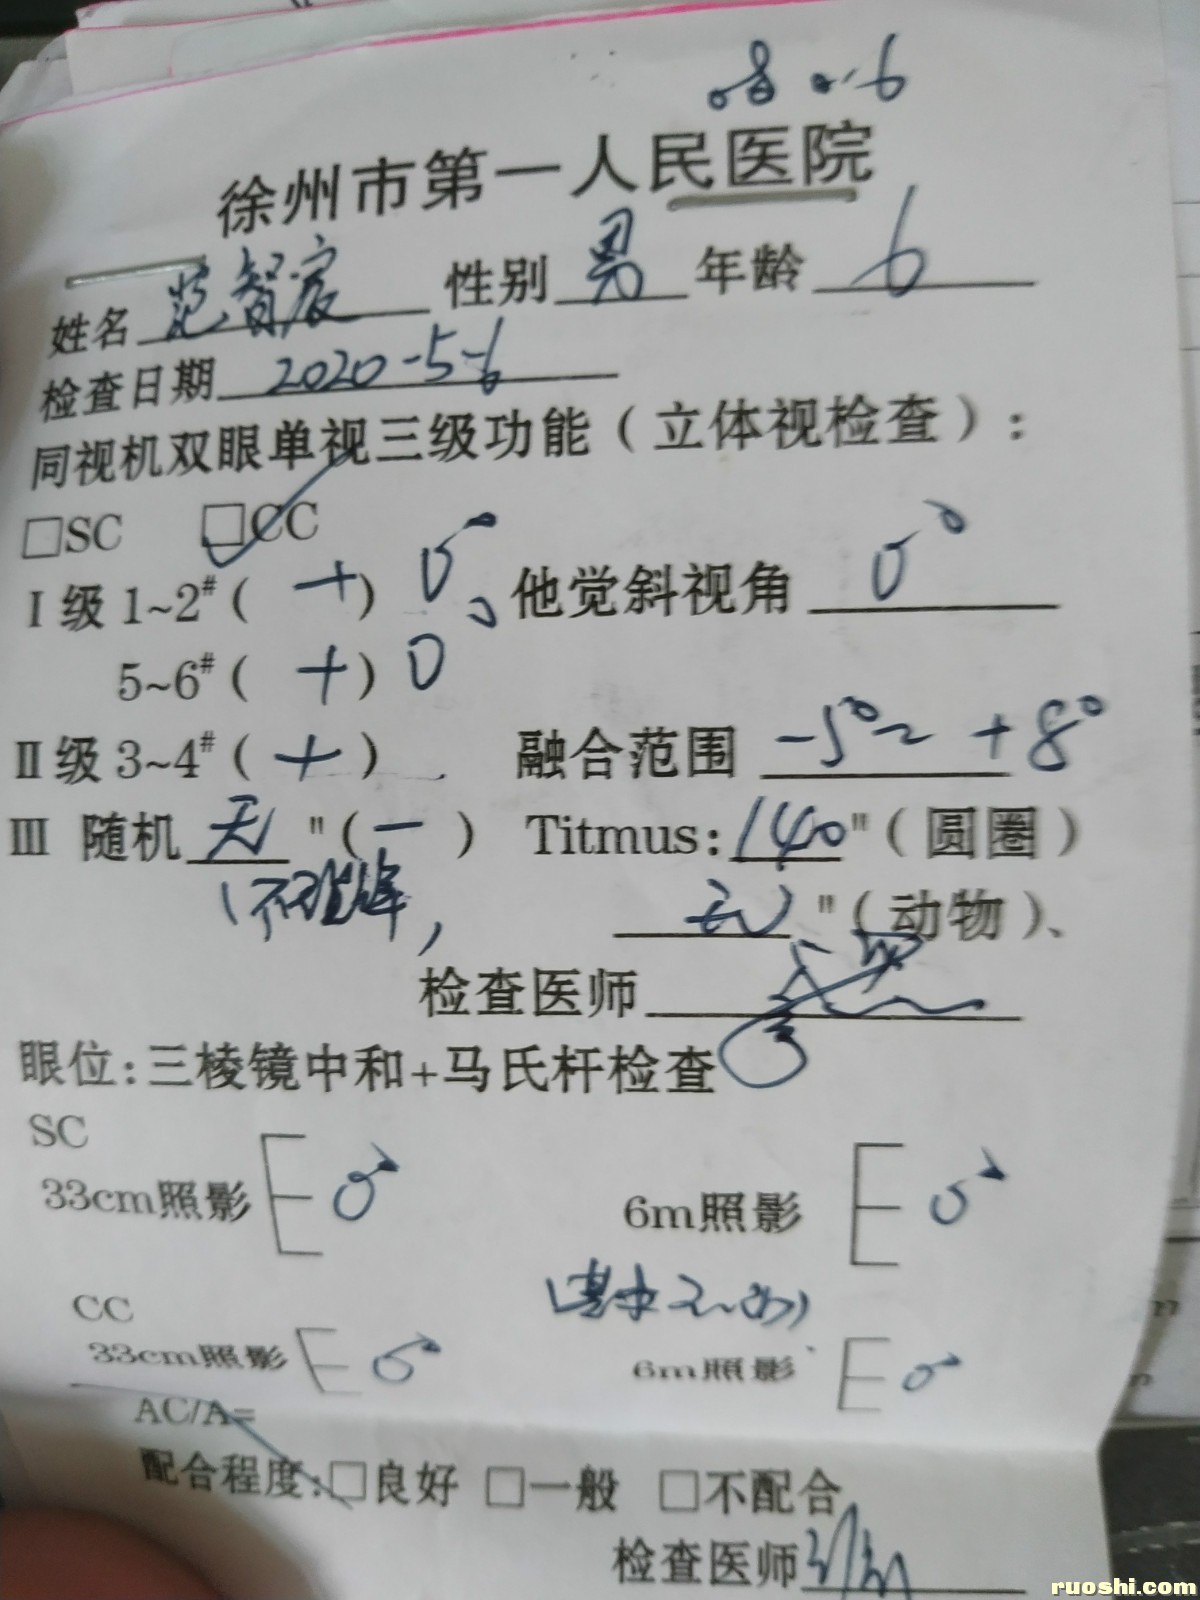 徐州市第一人民医院
姓名 范智宸 性别 男 年龄 6
检查日期 2020-5-6
同视机双眼单视三级功能（立体视检查）：
□SC □CC
I级 1~2#（ + ） 0° 他觉斜视角 0°
5~6#（ + ） 0
II级 3~4#（ + ） 融合范围 -5°~+8°
III 随机 无 "（ - ） Titmus: 140 "（圆圈）
无 "（动物）、
检查医师
眼位:三棱镜中和+马氏杆检查
SC
33cm照影 0° 6m照影 0°
CC
33cm照影 0° 6m照影 0°
AC/A=
配合程度:□良好 □一般 □不配合
检查医师
ruoshi.com